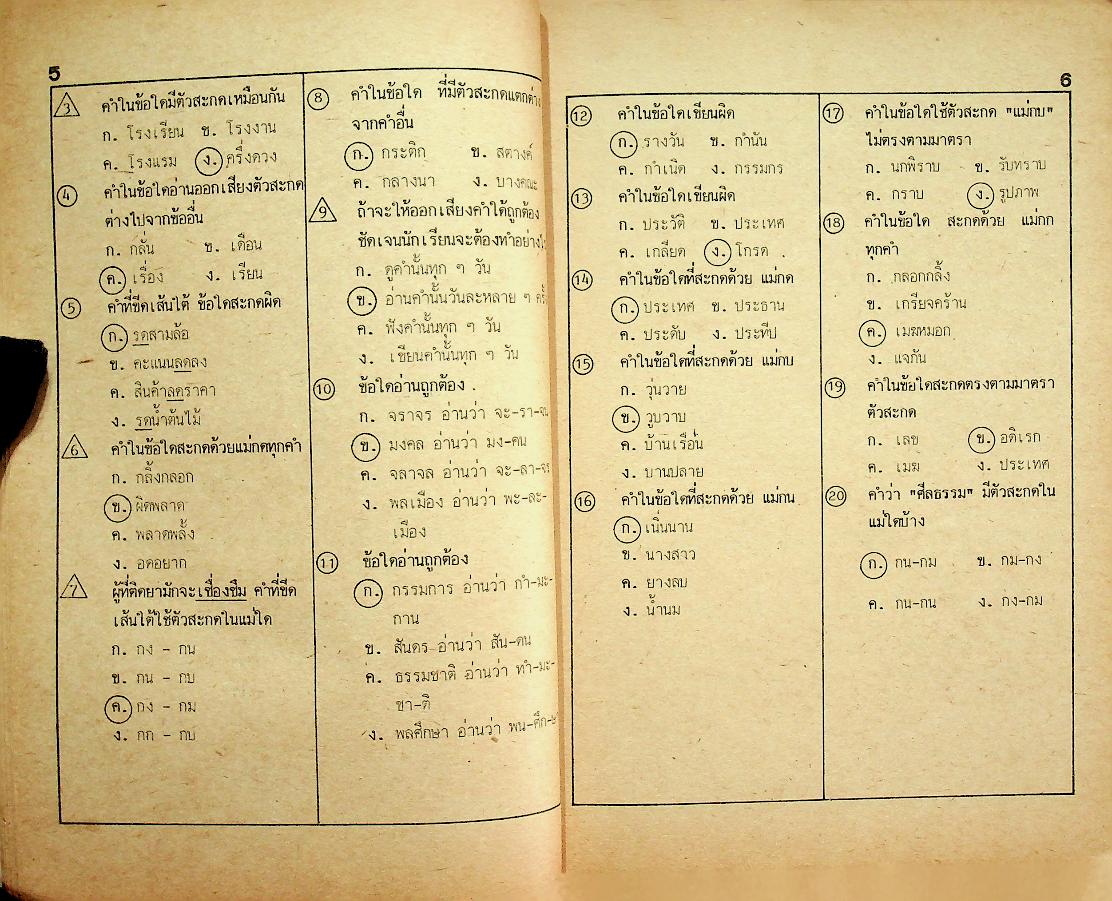 5
3 คำในข้อใดมีตัวสะกดเหมือนกัน
ก. โรงเรียน ข. โรงงาน
ค. โรงแรม ง. ครึ่งดวง
4 คำในข้อใดอ่านออกเสียงตัวสะกด
ต่างไปจากข้ออื่น
ก. กลั่น ข. เดือน
ค. เรื่อง ง. เรียน
5 คำที่ขีดเส้นใต้ ข้อใดสะกดผิด
ก. รดสามล้อ
ข. คะแนนลดลง
ค. สินค้าลดราคา
ง. รดน้ำต้นไม้
6 คำในข้อใดสะกดด้วยแม่กดทุกคำ
ก. กลิ้งกลอก
ข. ผิดพลาด
ค. พลาดพลั้ง
ง. อดอยาก
7 ผู้ที่ติดยามักจะเชื่องซึม คำที่ขีด
เส้นใต้ใช้ตัวสะกดในแม่ใด
ก. กง - กน
ข. กน - กบ
ค. กง - กม
ง. กก - กบ
8 คำในข้อใด ที่มีตัวสะกดแตกต่าง
จากคำอื่น
ก. กระติก ข. สตางค์
ค. กลางนา ง. บางคณะ
9 ถ้าจะให้ออกเสียงคำได้ถูกต้อง
ชัดเจนนักเรียนจะต้องทำอย่างไร
ก. ดูคำนั้นทุก ๆ วัน
ข. อ่านคำนั้นวันละหลาย ๆ ครั้ง
ค. ฟังคำนั้นทุก ๆ วัน
ง. เขียนคำนั้นทุก ๆ วัน
10 ข้อใดอ่านถูกต้อง .
ก. จราจร อ่านว่า จะ-รา-จน
ข. มงคล อ่านว่า มง-คน
ค. จลาจล อ่านว่า จะ-ลา-จน
ง. พลเมือง อ่านว่า พะ-ละ-
เมือง
11 ข้อใดอ่านถูกต้อง
ก. กรรมการ อ่านว่า กำ-มะ-
กาน
ข. สันดร อ่านว่า สัน-ดน
ค. ธรรมชาติ อ่านว่า ทำ-มะ-
ชา-ติ
ง. พลศึกษา อ่านว่า พน-ศึก-ษ
6
12 คำในข้อใดเขียนผิด
ก. รางวัน ข. กำนัน
ค. กำเนิด ง. กรรมกร
13 คำในข้อใดเขียนผิด
ก. ประวัติ ข. ประเทศ
ค. เกลียด ง. โกรด .
14 คำในข้อใดที่สะกดด้วย แม่กด
ก. ประเทศ ข. ประธาน
ค. ประดับ ง. ประทีป
15 คำในข้อใดที่สะกดด้วย แม่กบ
ก. วุ่นวาย
ข. วูบวาบ
ค. บ้านเรือน
ง. บานปลาย
16 คำในข้อใดที่สะกดด้วย แม่กน
ก. เนิ่นนาน
ข. นางสาว
ค. ยางลบ
ง. น้ำนม
17 คำในข้อใดใช้ตัวสะกด "แม่กบ"
ไม่ตรงตามมาตรา
ก. นกพิราบ ข. รับทราบ
ค. กราบ ง. รูปภาพ
18 คำในข้อใด สะกดด้วย แม่กก
ทุกคำ
ก. กลอกกลิ้ง
ข. เกรียจคร้าน
ค. เมฆหมอก
ง. แจกัน
19 คำในข้อใดสะกดตรงตามมาตรา
ตัวสะกด
ก. เลข ข. อดิเรก
ค. เมฆ ง. ประเทศ
20 คำว่า "ศีลธรรม" มีตัวสะกดใน
แม่ใดบ้าง
ก. กน-กม ข. กม-กง
ค. กน-กน ง. กง-กม